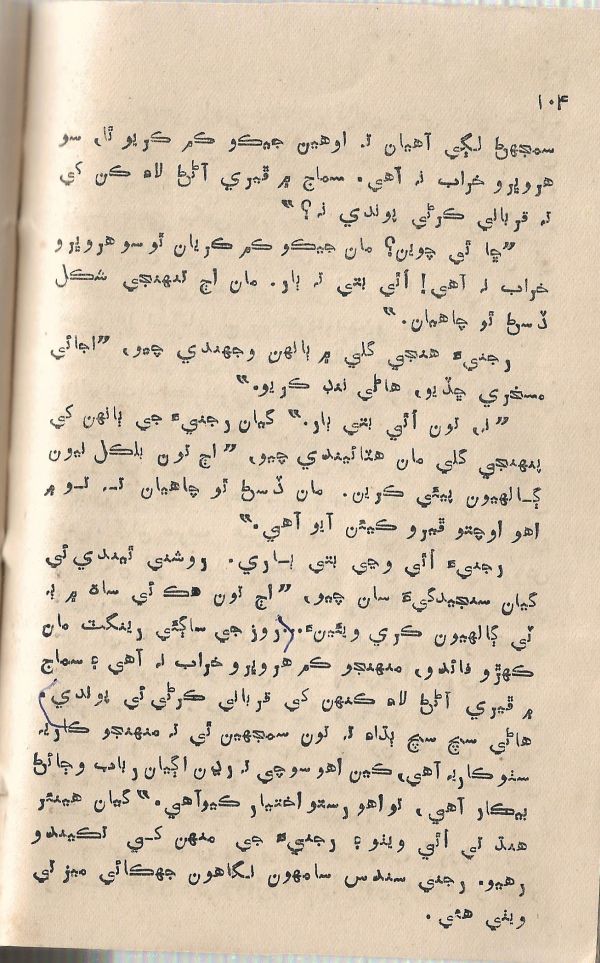 ١٠۴
سمجهڻ لڳي آهيان تہ اوهين جيڪو ڪم ڪريو ٿا، سو
هروڀرو خراب نہ آهي. سماج ۾ ڦيري آڻڻ لاءِ ڪن کي
تہ قرباني ڪرڻي پوندي نہ؟“
”ڇا ٿي چوين؟ مان جيڪو ڪم ڪريان ٿو سو هروڀرو
خراب نہ آهي! اُٿي بتي تہ ٻار. مان اڄ تنهنجي شڪل
ڏسڻ ٿو چاهيان.“
رجنيءَ هنجي ڳلي ۾ ٻانهون وجهندي چيو، ”اجائي
مسخري ڇڏيو، هاڻي ننڊ ڪريو.“
”نہ، تون اُٿي بتي ٻار.“ گيان رجنيءَ جي ٻانهن کي
پنهنجي ڳلي مان هٽائيندي چيو، ”اڄ تون بلڪل نيون
ڳالهيون پيئي ڪرين. مان ڏسڻ ٿو چاهيان تہ تو ۾
اهو اوچتو ڦيرو ڪيئن آيو آهي.“
رجنيءَ اُٿي وڃي بتي ٻاري. روشني ٿيندي ئي
گيان سنجيدگيءَ سان چيو، ”اڄ تون هڪ ئي ساھ ۾ ٻہ
ٽي ڳالهيون ڪري ويئينءَ...روز جي ساڳئي رينگٽ مان
ڪهڙو فائدو، منهنجو ڪم هروڀرو خراب نہ آهي ۽ سماج
۾ ڦيري آڻڻ لاءِ ڪنهن کي قرباني ڪرڻي ئي پوندي.
هاڻي سچ سچ ٻڌاءِ تہ تون سمجهين ٿي تہ منهنجو ڪاريہ
سٺو ڪاريہ آهي، ڪين اهو سوچي تہ رڍن اڳيان رباب وڄائڻ
بيڪار آهي، تو اهو رستو اختيار ڪيو آهي.“ گيان هيئنئر
هنڌ تي اُٿي ويٺو ۽ رجنيءَ جي منهن کي تڪيندو
رهيو. رجني سندس سامهون نگاهون جهڪائي ميز تي
ويٺي هئي.